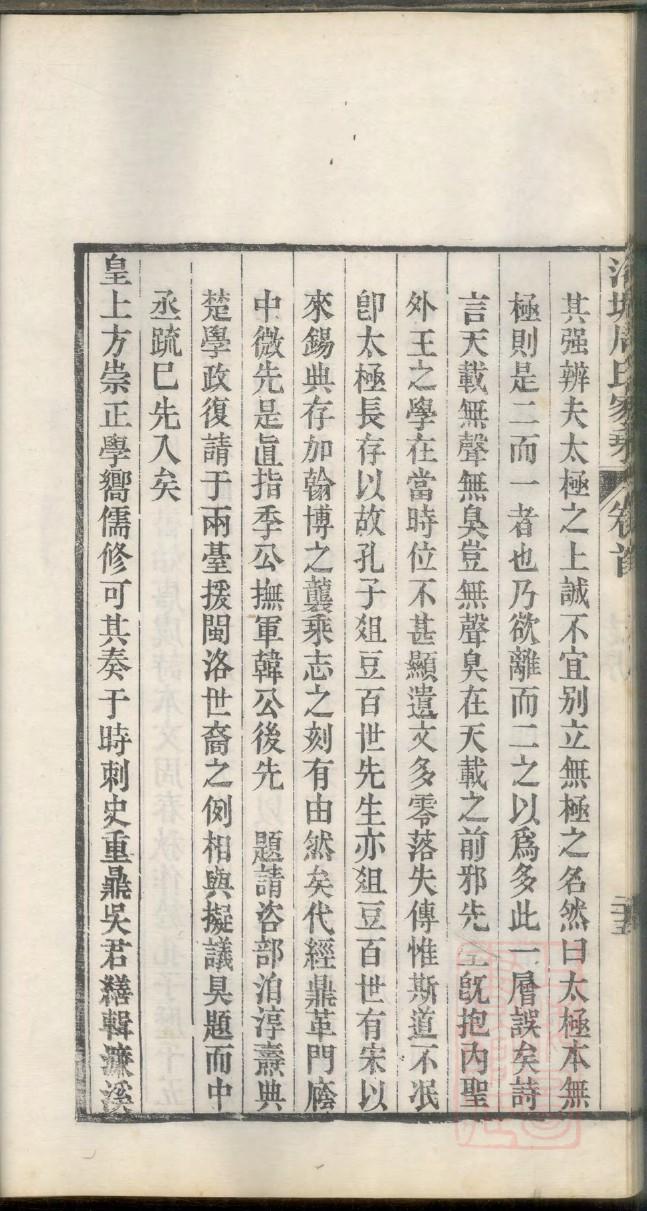 周氏家乘 卷首
其强辨夫太極之上誠不宜别立無極之名然曰太極本無
極則是二而一者也乃欲離而二之以爲多此一層誤矣詩
言天載無聲無臭豈無聲臭在天載之前邪先生旣抱内聖
外王之學在當時位不甚顯遺文多零落失傳惟斯道不泯
卽太極長存以故孔子俎豆百世先生亦俎豆百世有宋以
來錫典存加翰博之襲乘志之刻有由然矣代經鼎革門廕
中微先是直指季公撫軍韓公後先 題請咨部洎淳燾典
楚學政復請于兩臺援閩洛世裔之例相與擬議具題而中
丞疏巳先入矣
皇上方崇正學嚮儒修可其奏于時刺史重鼎吳君繕輯濂溪